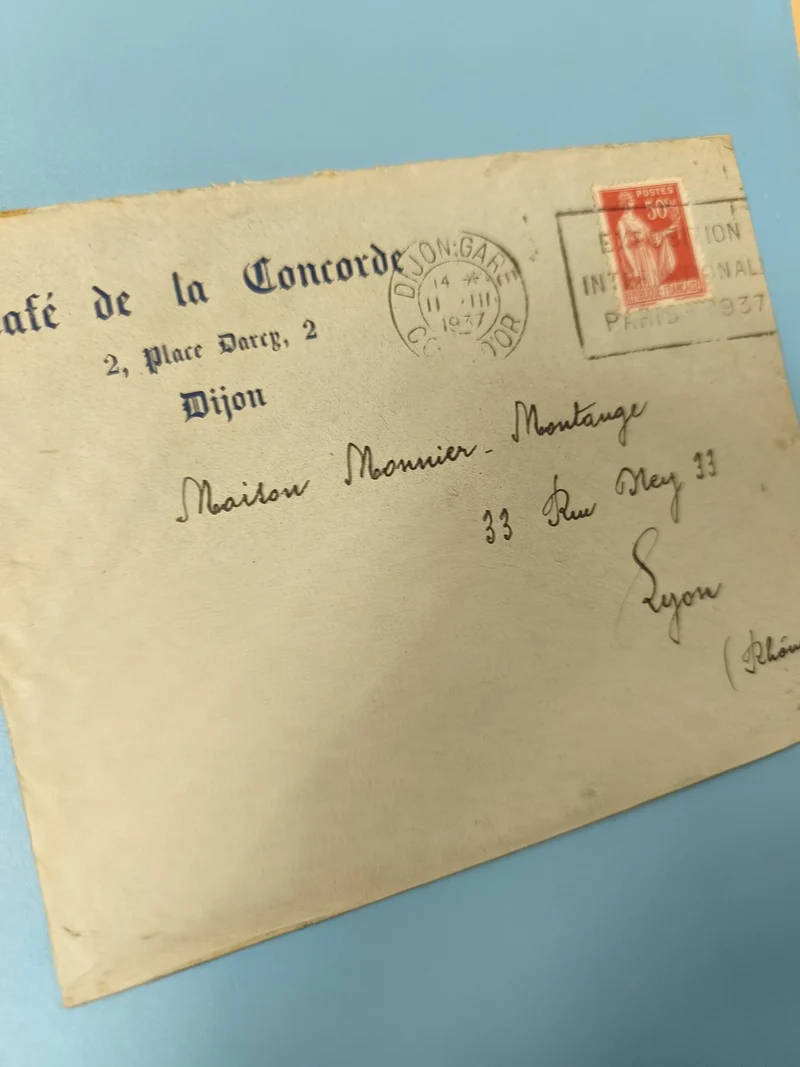 Café de la Concorde
2, Place Darcy, 2
Dijon
DIJON-GARE
14 *
11 III
1937
D'OR
POSTES
50c
INTERNATIONAL
PARIS 1937
Maison Monnier-Montange
33 Rue Ney 33
Lyon
(Rhône